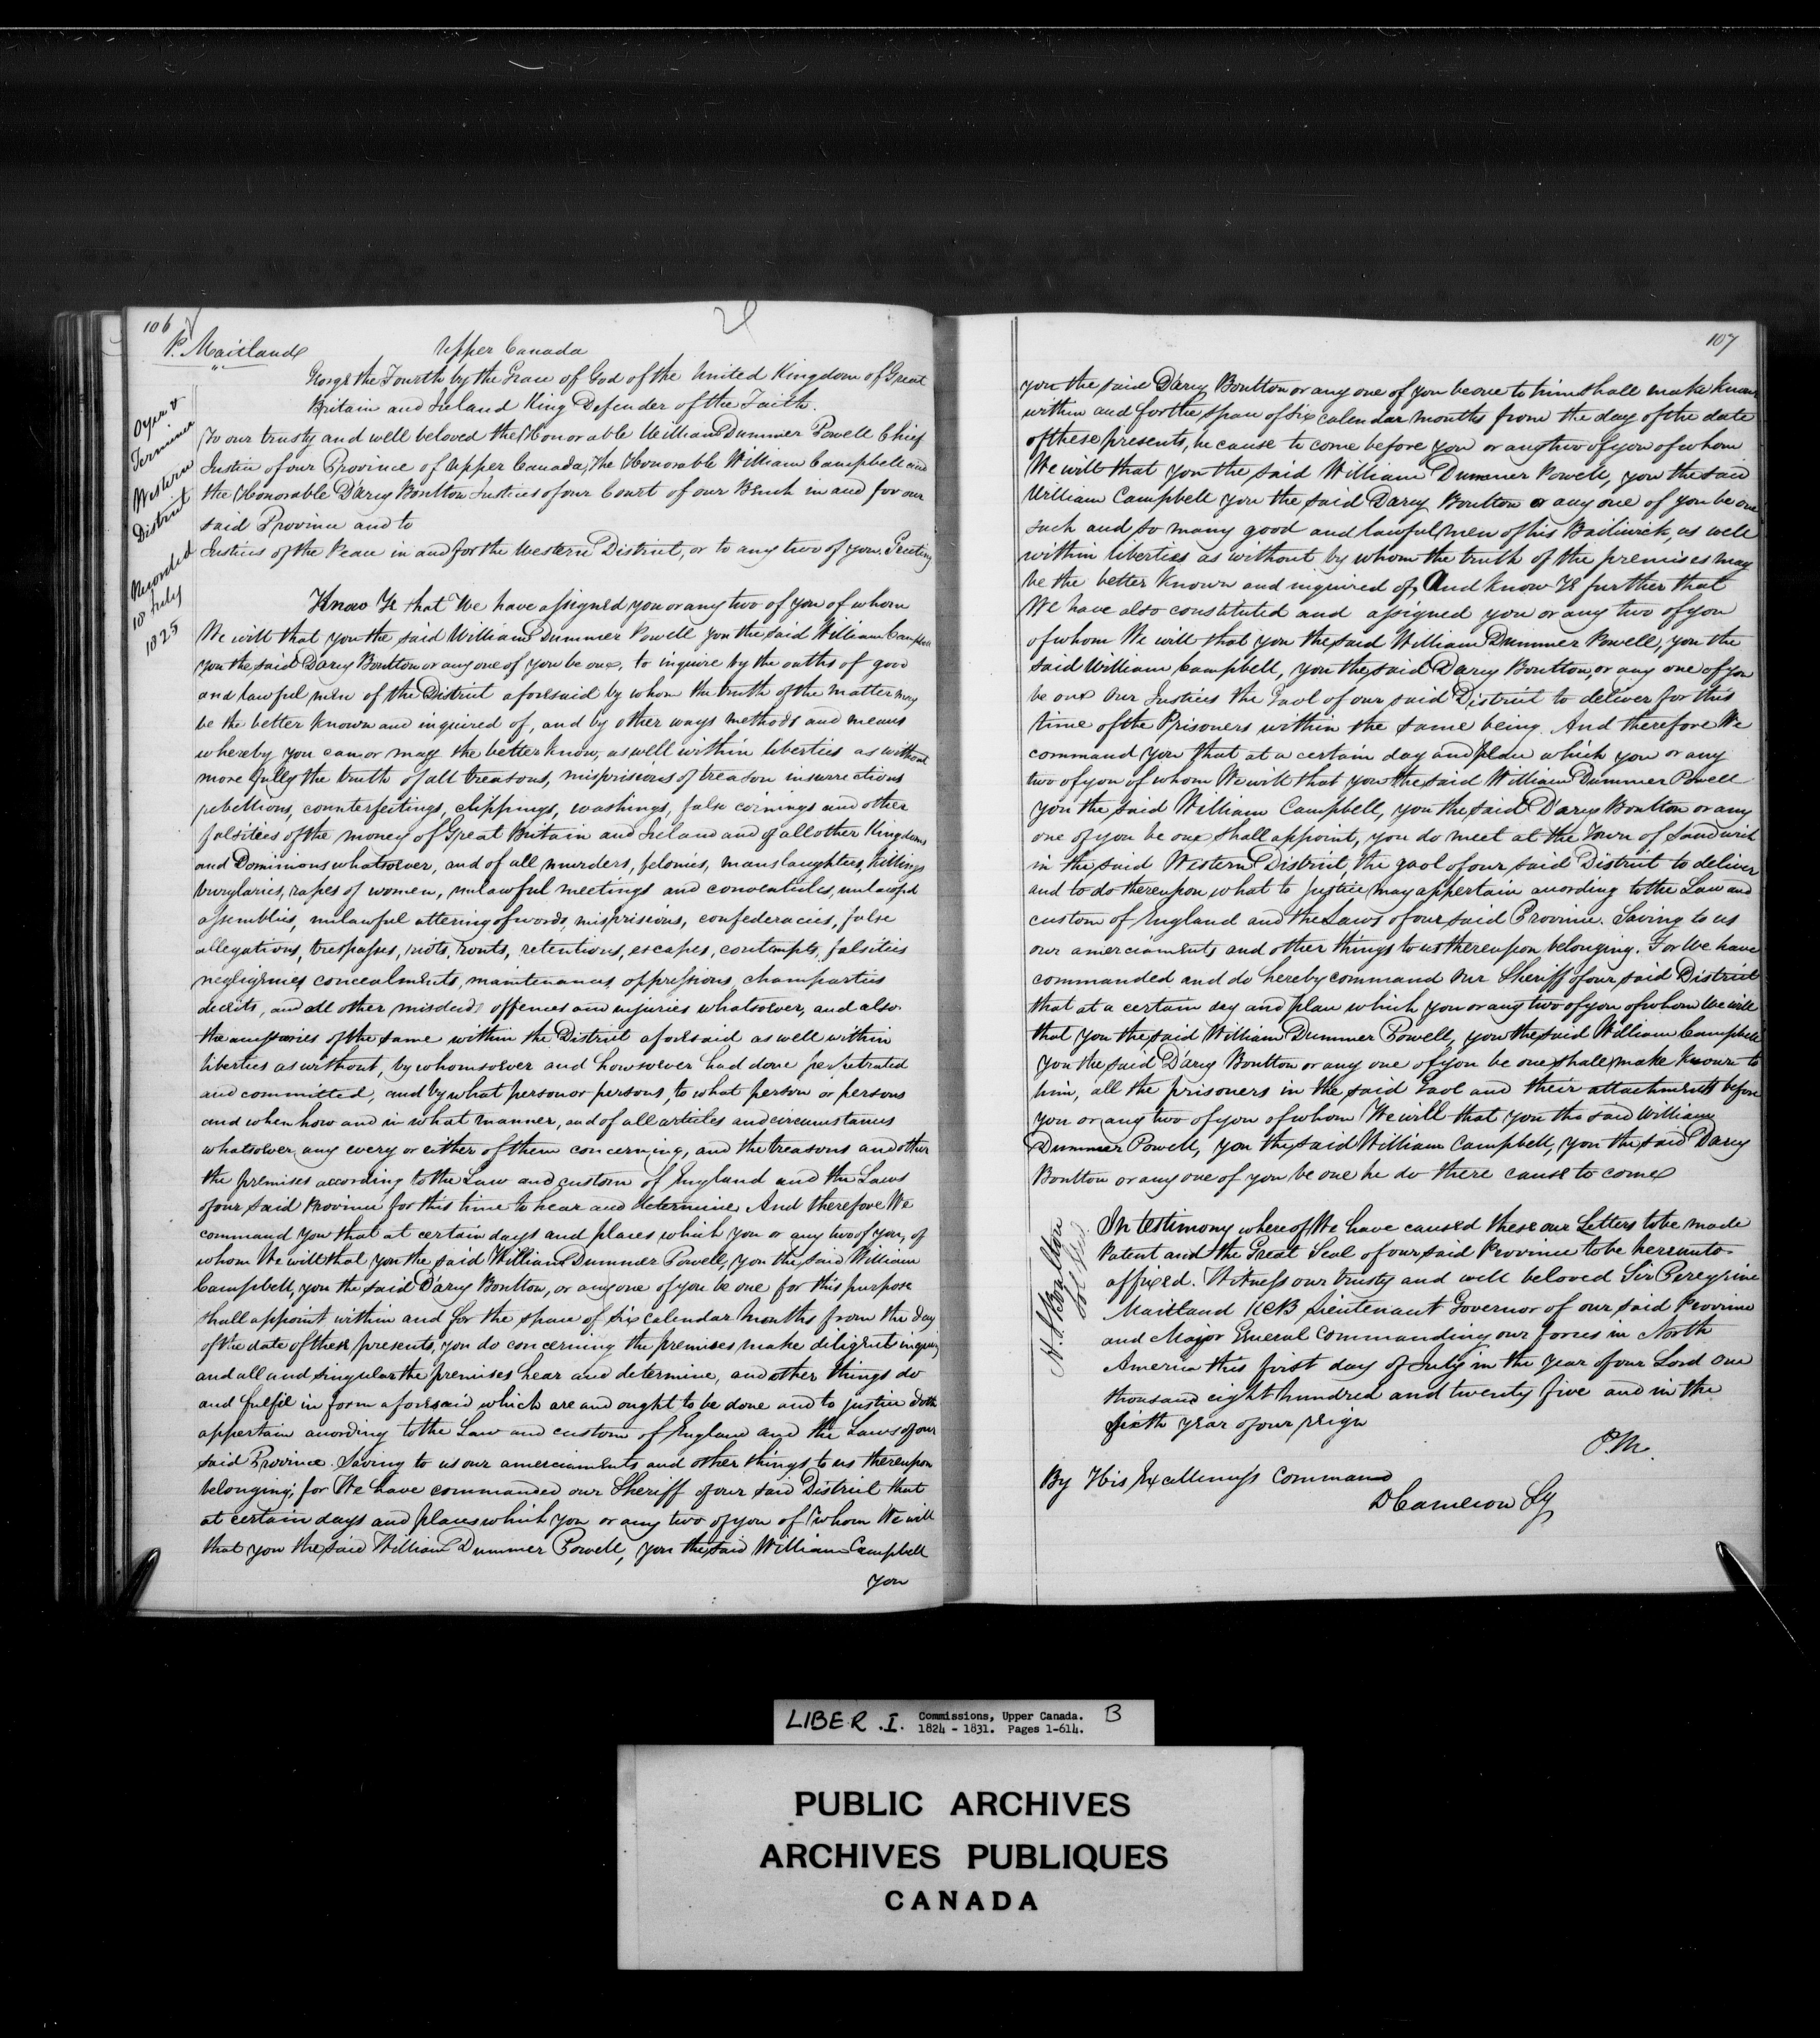 106
P. Maitland
Upper Canada
George the Fourth by the Grace of God of the United Kingdom of Great
Britain and Ireland King Defender of the Faith.
Oyer &
Terminer
Western
District
Recorded
18 July
1825
To our trusty and well beloved the Honorable William Dummer Powell Chief
Justice of our Province of Upper Canada, The Honorable William Campbell and
the Honorable D'arcy Boulton Justices of our Court of our Bench in and for our
said Province and to
Justices of the Peace in and for the Western District, or to any two of you. Greeting
Know Ye that We have assigned you or any two of you of whom
We will that you the said William Dummer Powell you the said William Campbell
you the said Darcy Boulton or any one of you be one, to inquire by the oaths of good
and lawful men of the District aforesaid by whom the truth of the matter may
be the better known and inquired of, and by other ways methods and means
whereby you can or may the better know, as well within liberties as without
more fully the truth of all treasons, misprisions of treason insurrections
rebellions, counterfeitings, clippings, washings, false coinings and other
falsities of the money of Great Britain and Ireland and of all other Kingdoms
and Dominions whatsoever, and of all murders, felonies, manslaughters, killings
burglaries, rapes of women, unlawful meetings and conventicles, unlawful
assemblies, unlawful uttering of words, misprisions, confederacies, false
allegations, trespasses, riots, routs, retentions, escapes, contempts, falsities
negligences, concealments, maintenances, oppressions, champarties
deceits, and all other misdeeds offences and injuries whatsoever, and also
the accessories of the same within the District aforesaid as well within
liberties as without, by whomsoever and howsoever had done perpetrated
and committed, and by what person or persons, to what person or persons
and when how and in what manner, and of all articles and circumstances
whatsoever any every or either of them concerning, and the treasons and other
the premises according to the Law and custom of England and the Laws
of our said Province for this time to hear and determine. And therefore We
command you that at certain days and places which you or any two of you, of
whom We will that you the said William Dummer Powell, you the said William
Campbell, you the said D'arcy Boulton, or any one of you be one for this purpose
shall appoint within and for the space of six calendar months from the day
of the date of these presents, you do concerning the premises make diligent inquiry
and all and singular the premises hear and determine, and other things do
and fulfil in form aforesaid which are and ought to be done and to justice doth
appertain according to the Law and custom of England and the Laws of our
said Province. Saving to us our amerciaments and other things to us thereupon
belonging; for We have commanded our Sheriff of our said District that
at certain days and places which you or any two of you of whom We will
that you the said William Dummer Powell, you the said William Campbell
you
107
you the said D'arcy Boulton or any one of you be one to him shall make known
within and for the space of six calendar months from the day of the date
of these presents, he cause to come before you or any two of you of whom
We will that you the said William Dummer Powell, you the said
William Campbell you the said Darcy Boulton or any one of you be one
such and so many good and lawful men of his Bailiwick, as well
within liberties as without by whom the truth of the premises may
be the better known and inquired of, And know Ye further that
We have also constituted and assigned you or any two of you
of whom We will that you the said William Dummer Powell, you the
said William Campbell, you the said Darcy Boulton, or any one of you
be one our Justices the Gaol of our said District to deliver for this
time of the Prisoners within the same being. And therefore We
command you that at a certain day and place which you or any
two of you of whom We will that you the said William Dummer Powell
you the said William Campbell, you the said Darcy Boulton or any
one of you be one shall appoint, you do meet at the Town of Sandwich
in the said Western District, the gaol of our said District to deliver
and to do thereupon what to justice may appertain according to the Law and
custom of England and the Laws of our said Province. Saving to us
our amerciaments and other things to us thereupon belonging. For We have
commanded and do hereby command our Sheriff of our said District
that at a certain day and place which you or any two of you of whom We will
that you the said William Dummer Powell, you the said William Campbell
you the said D'arcy Boulton or any one of you be one shall make known to
him, all the prisoners in the said Gaol and their attachments before
you or any two of you of whom We will that you the said William
Dummer Powell, you the said William Campbell, you the said Darcy
Boulton or any one of you be one he do there cause to come
H. J. Boulton
Sol Gen.
In testimony whereof We have caused these our Letters to be made
Patent and the Great Seal of our said Province to be hereunto
affixed. Witness our trusty and well beloved Sir Peregrine
Maitland KCB Lieutenant Governor of our said Province
and Major General Commanding our forces in North
America this first day of July in the Year of our Lord One
thousand eight hundred and twenty five and in the
sixth year of our reign
P.M.
By His Excellency's Command
D Cameron Sy
LIBER .I. Commissions, Upper Canada. B
1824 - 1831. Pages 1-614.
PUBLIC ARCHIVES
ARCHIVES PUBLIQUES
CANADA